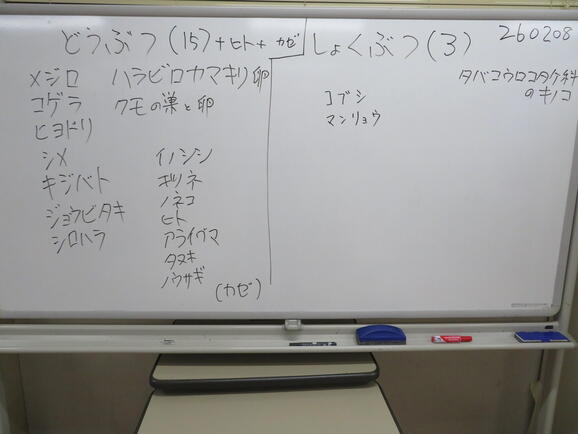 どうぶつ(15)+ヒト+カゼ
メジロ ハラビロカマキリ卵
コゲラ クモの巣と卵
ヒヨドリ
シメ イノシシ
キジバト キツネ
ノネコ
ジョウビタキ ヒト
シロハラ アライグマ
タヌキ
ノウサギ
(カゼ)
しょくぶつ(3)
260208
タバコウロコタケ科
のキノコ
コブシ
マンリョウ